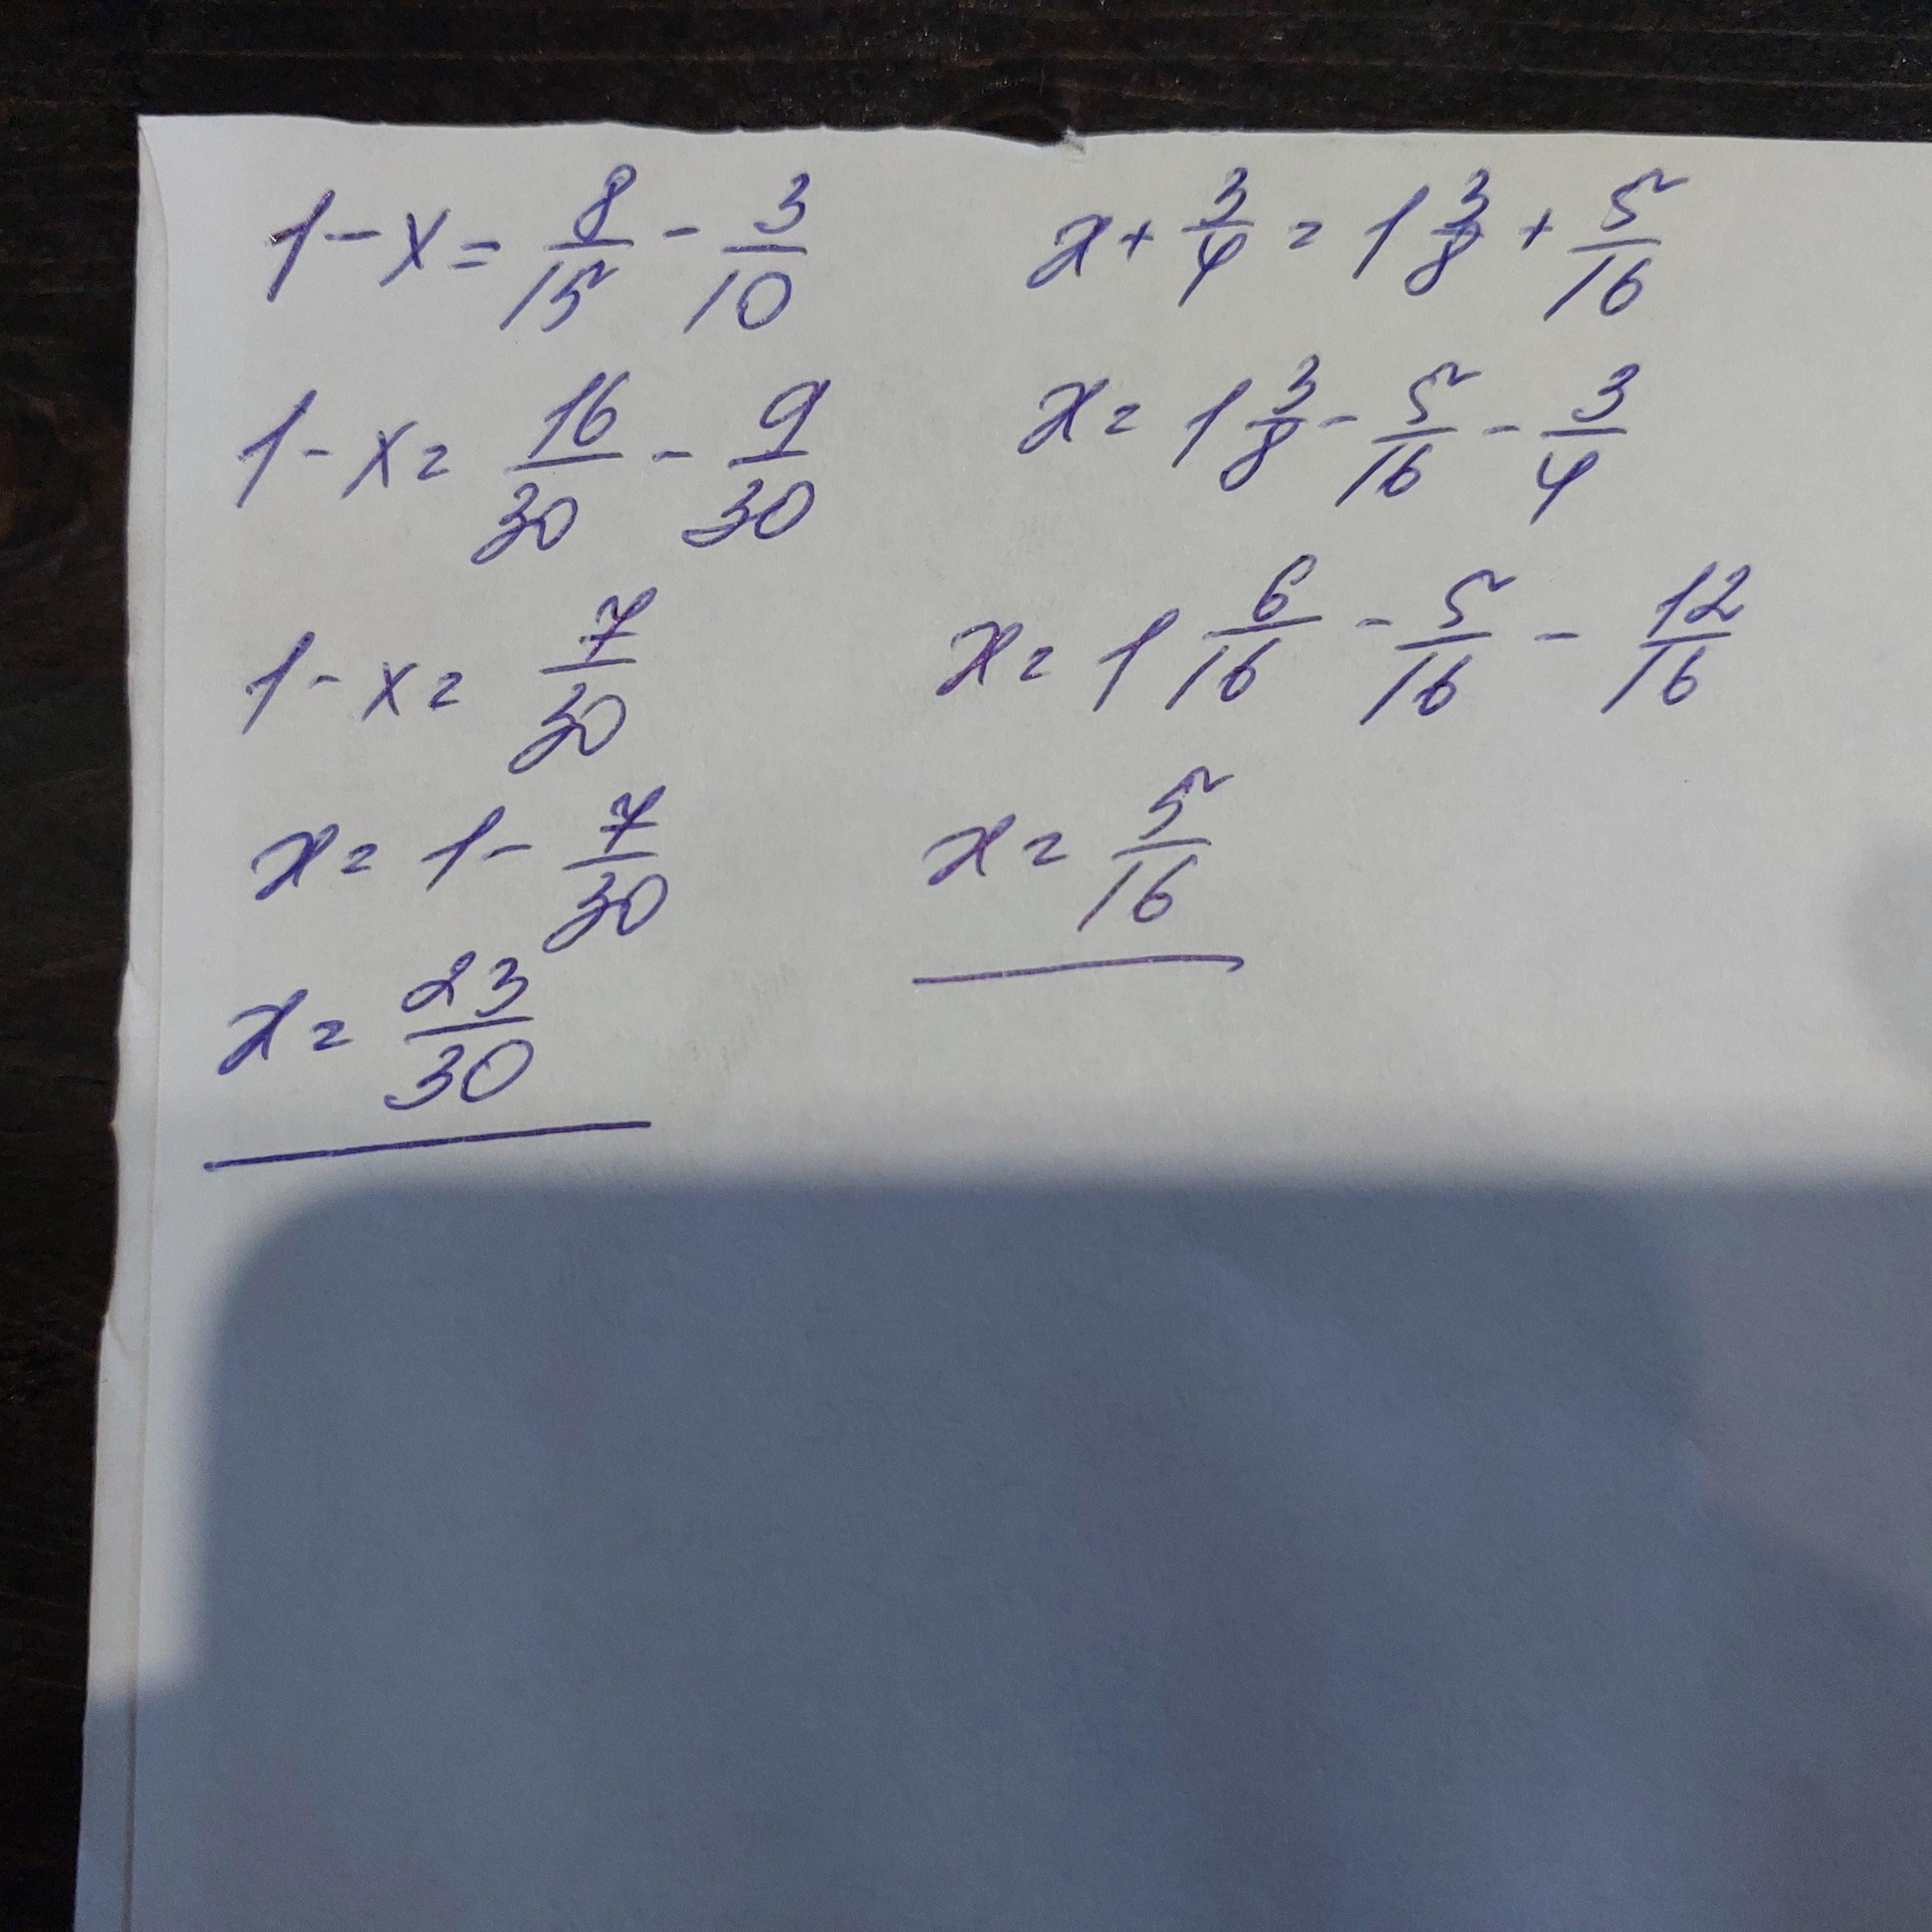 1 - x = 8/15 - 3/10
1 - x = 16/30 - 9/30
1 - x = 7/30
x = 1 - 7/30
x = 23/30
x + 3/4 = 1 3/8 + 5/16
x = 1 3/8 - 5/16 - 3/4
x = 1 6/16 - 5/16 - 12/16
x = 5/16